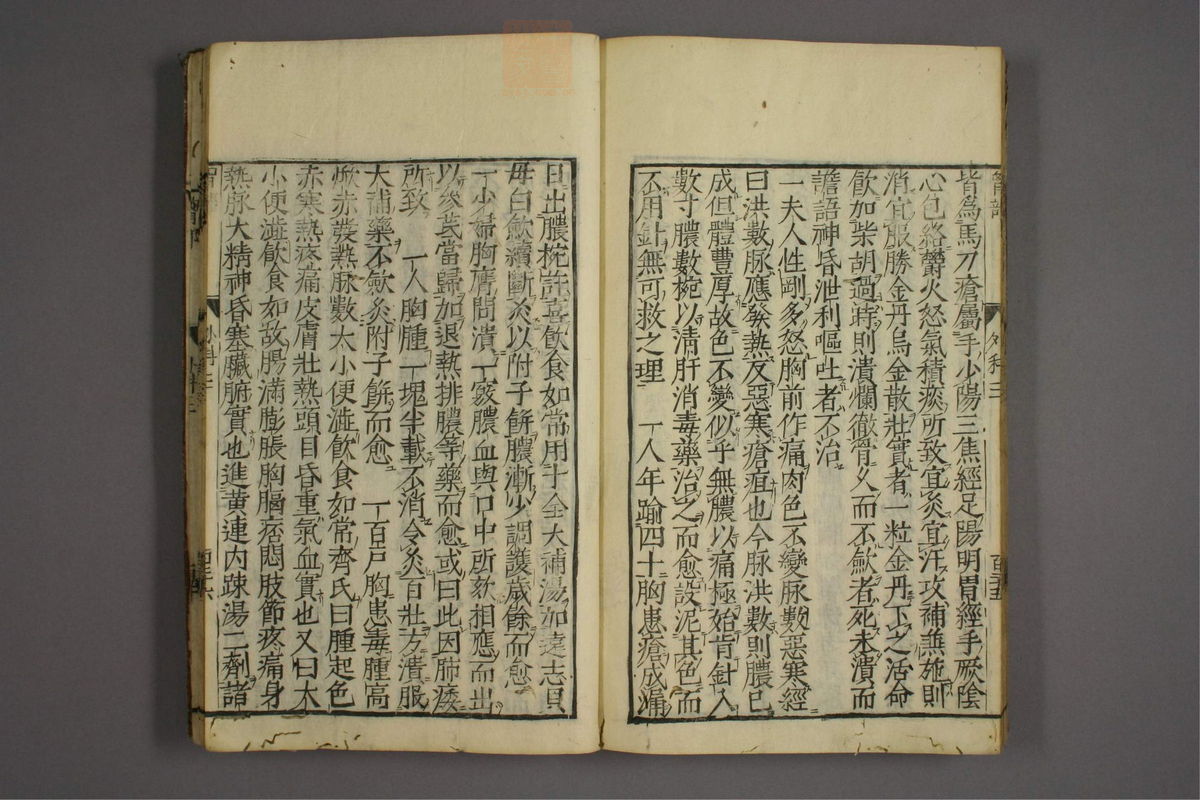 皆為馬刀瘡屬手少陽三焦經足陽明胃經手厥陰
心包絡鬱火怒氣積痰所致宜灸宜汗攻補無施則
消宜服勝金丹烏金散壯實者一粒金丹下之活命
飲加柴胡過時則潰爛徹骨久而不斂者死未潰而
譫語神昏泄利嘔吐者不治
一夫人性剛多怒胸前作痛肉色不變脉數惡寒經
曰洪數脉應發熱反惡寒瘡疽也今脉洪數則膿已
成但體豐厚故色不變似乎無膿以痛極始肯針入
數寸膿數椀以清肝消毒藥治之而愈設泥其色而
不用針無可救之理　一人年踰四十胸患瘡成漏
日出膿椀許喜飲食如常用十全大補湯加遠志貝
母白斂續斷灸以附子餅膿漸少調護歲餘而愈
一少婦胸膺間潰一竅膿血與口中所欬相應而出
以參芪當歸加退熱排膿等藥而愈或曰此因肺痿
所致　一人胸腫一塊半載不消令灸百壯方潰服
大補藥不斂灸附子餅而愈　一百戶胸患毒腫高
焮赤發熱脉數大小便澁飲食如常齊氏曰腫起色
赤寒熱疼痛皮膚壯熱頭目昏重氣血實也又曰大
小便澁飲食如故腸滿膨脹胸膈痞悶肢節疼痛身
熱脉大精神昏塞臟腑實也進黄連内踈湯二劑諸
外科三
百三五
外科三
百三六